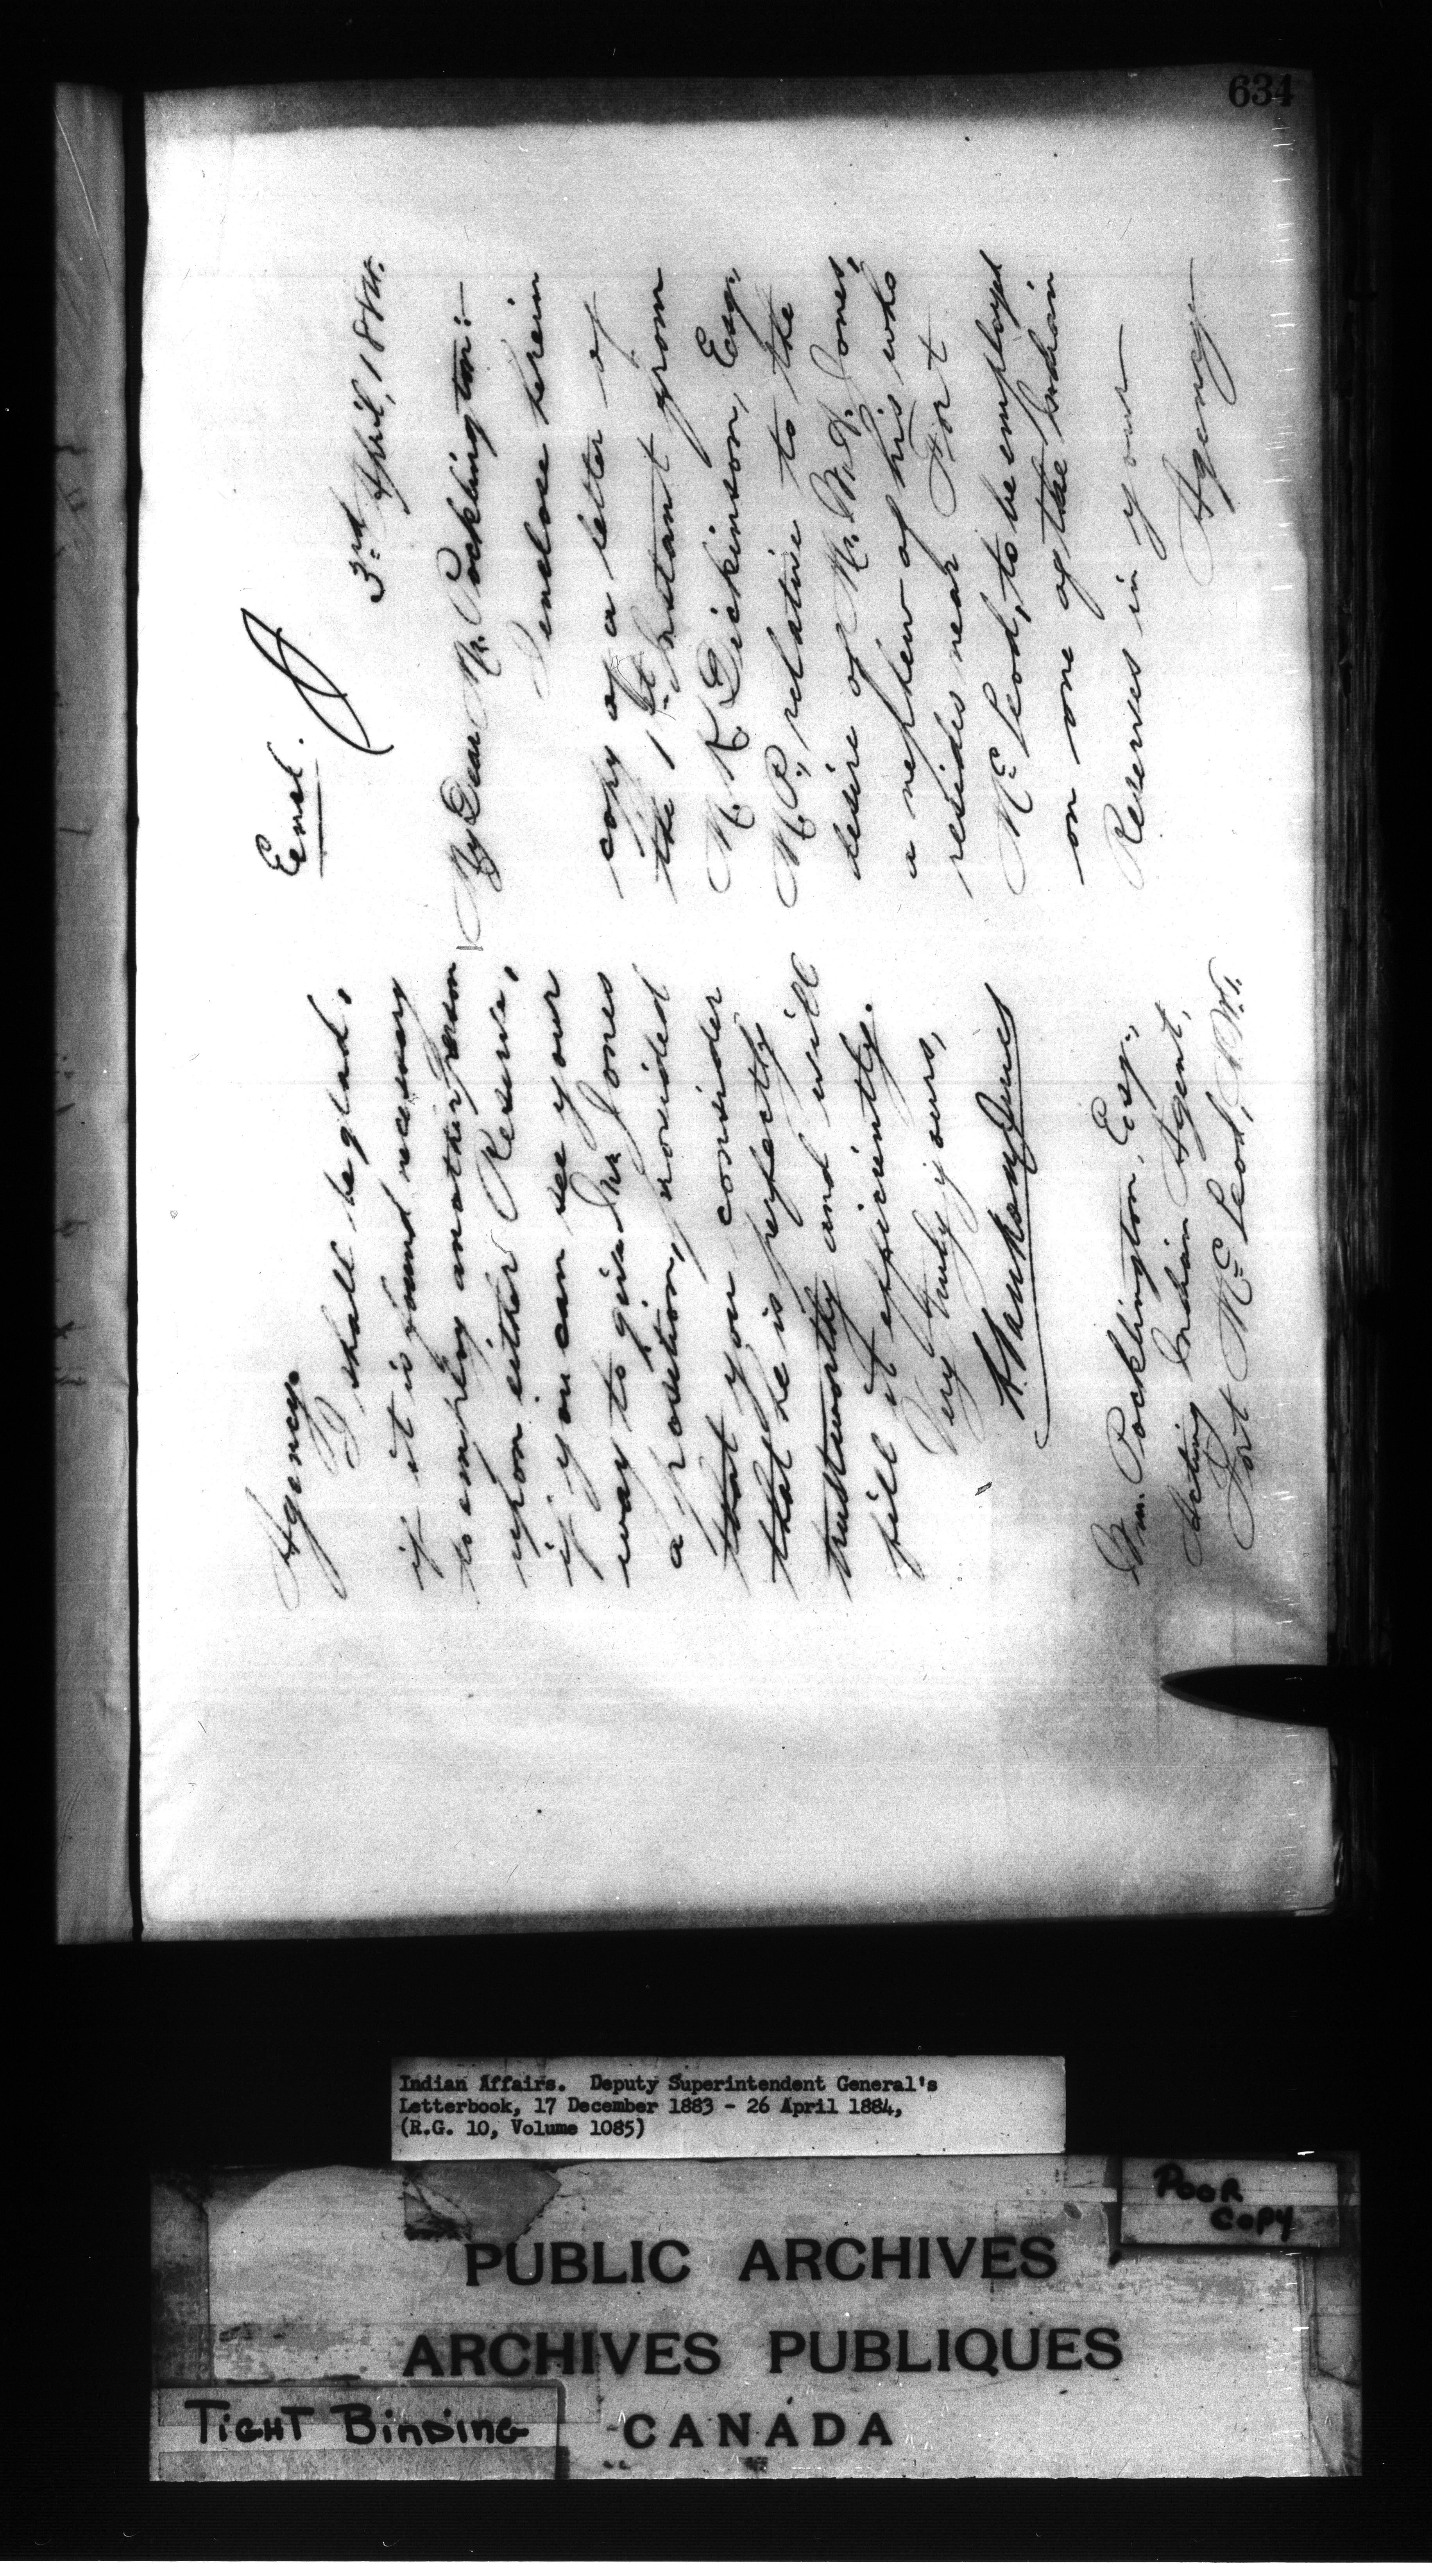 634
Encl.
3rd April, 1884.
My Dear Mr. Pocklington:—
I enclose herein
copy of a letter of
the 1st Instant from
M. K. Dickinson, Esq.,
M.P., relative to the
desire of Mr. W. D. Jones,
a nephew of his who
resides near Fort
McLeod, to be employed
on one of the Indian
Reserves in your
Agency
Agency
I shall be glad,
if it is found necessary
to employ another person
upon either Reserve,
if you can see your
way to give Mr Jones
a position, provided
that you consider
that he is perfectly
trustworthy and will
fill it efficiently.
Very truly yours,
L. Vankoughnet
Wm. Pocklington, Esq.,
Acting Indian Agent,
Fort McLeod, N.W.T.
Indian Affairs. Deputy Superintendent General's
Letterbook, 17 December 1883 - 26 April 1884,
(R.G. 10, Volume 1085)
POOR
COPY
PUBLIC ARCHIVES
ARCHIVES PUBLIQUES
CANADA
TIGHT BINDING